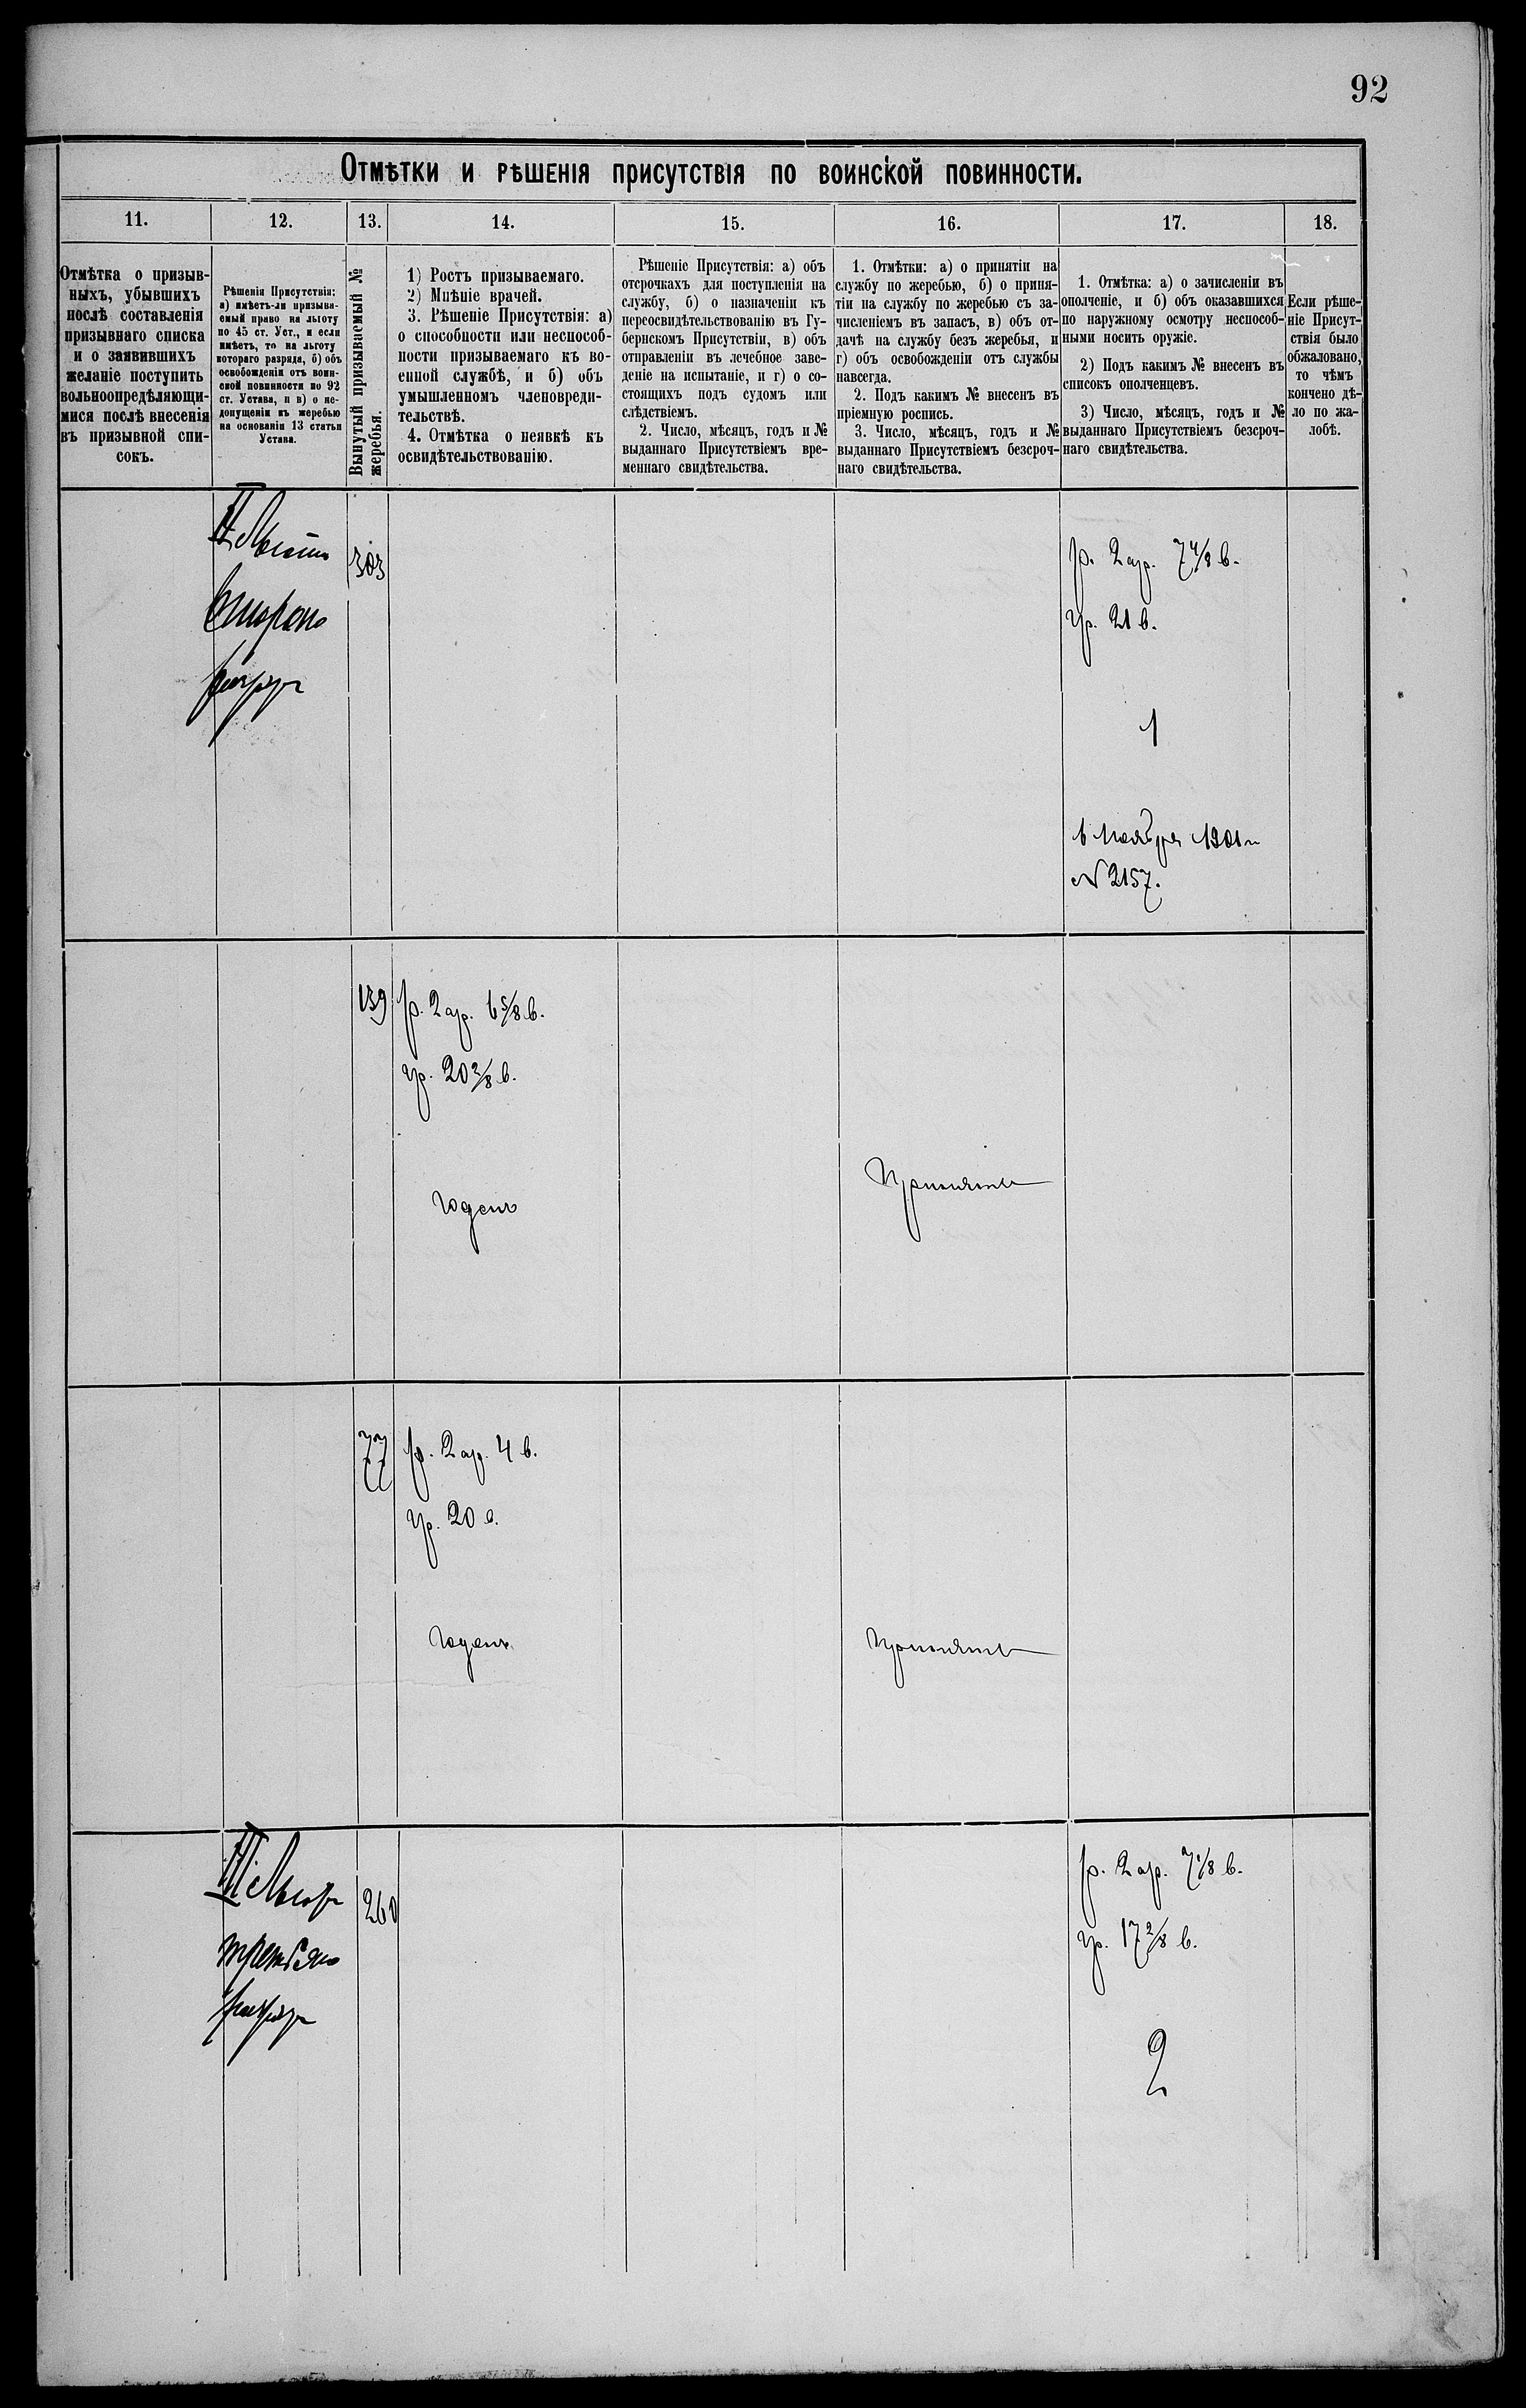 92
Отмѣтки и рѣшенія присутствія по воинской повинности.
11.
12.
13.
14.
15.
16.
17.
18.
Отмѣтка о призыв-
ныхъ, убывшихъ
послѣ составленія
призывнаго списка
и о заявившихъ
желаніе поступить
вольноопредѣляющи-
мися послѣ внесенія
въ призывной спи-
сокъ.
Рѣшенія Присутствія:
а) имѣетъ-ли призыва-
емый право на льготу
по 45 ст. Уст., и если
имѣетъ, то на льготу
котораго разряда, б) объ
освобожденіи отъ воин-
ской повинности по 92
ст. Устава, и в) о не-
допущеніи къ жеребью
на основаніи 13 статьи
Устава.
Вынутый призываемый №
жеребья.
1) Ростъ призываемаго.
2) Мнѣніе врачей.
3. Рѣшеніе Присутствія: а)
о способности или неспособ-
ности призываемаго къ во-
енной службѣ, и б) объ
умышленномъ членовреди-
тельствѣ.
4. Отмѣтка о неявкѣ къ
освидѣтельствованію.
Рѣшеніе Присутствія: а) объ
отсрочкахъ для поступленія на
службу, б) о назначеніи къ
переосвидѣтельствованію въ Гу-
бернскомъ Присутствіи, в) объ
отправленіи въ лечебное заве-
деніе на испытаніе, и г) о со-
стоящихъ подъ судомъ или
слѣдствіемъ.
2. Число, мѣсяцъ, годъ и №
выданнаго Присутствіемъ вре-
меннаго свидѣтельства.
1. Отмѣтки: а) о принятіи на
службу по жеребью, б) о приня-
тіи на службу по жеребью съ за-
численіемъ въ запасъ, в) объ от-
дачѣ на службу безъ жеребья, и
г) объ освобожденіи отъ службы
навсегда.
2. Подъ какимъ № внесенъ въ
пріемную роспись.
3. Число, мѣсяцъ, годъ и №
выданнаго Присутствіемъ безсроч-
наго свидѣтельства.
1. Отмѣтка: а) о зачисленіи въ
ополченіе, и б) объ оказавшихся
по наружному осмотру неспособ-
ными носить оружіе.
2) Подъ какимъ № внесенъ въ
списокъ ополченцевъ.
3) Число, мѣсяцъ, годъ и №
выданнаго Присутствіемъ безсроч-
наго свидѣтельства.
Если рѣше-
ніе Присут-
ствія было
обжаловано,
то чѣмъ
кончено дѣ-
ло по жа-
лобѣ.
II
303
р. 2 ар. 7 4/8 в.
гр. 21 в.
1
6 Ноября 1901 г
№ 2157.
139
р. 2 ар. 6 5/8 в.
гр. 20 2/8 в.
годенъ
Принять
77
р. 2 ар. 4 в.
гр. 20 в.
годенъ
Принять
III
третьяго
260
р. 2 ар. 7 1/8 в.
гр. 17 2/8 в.
2